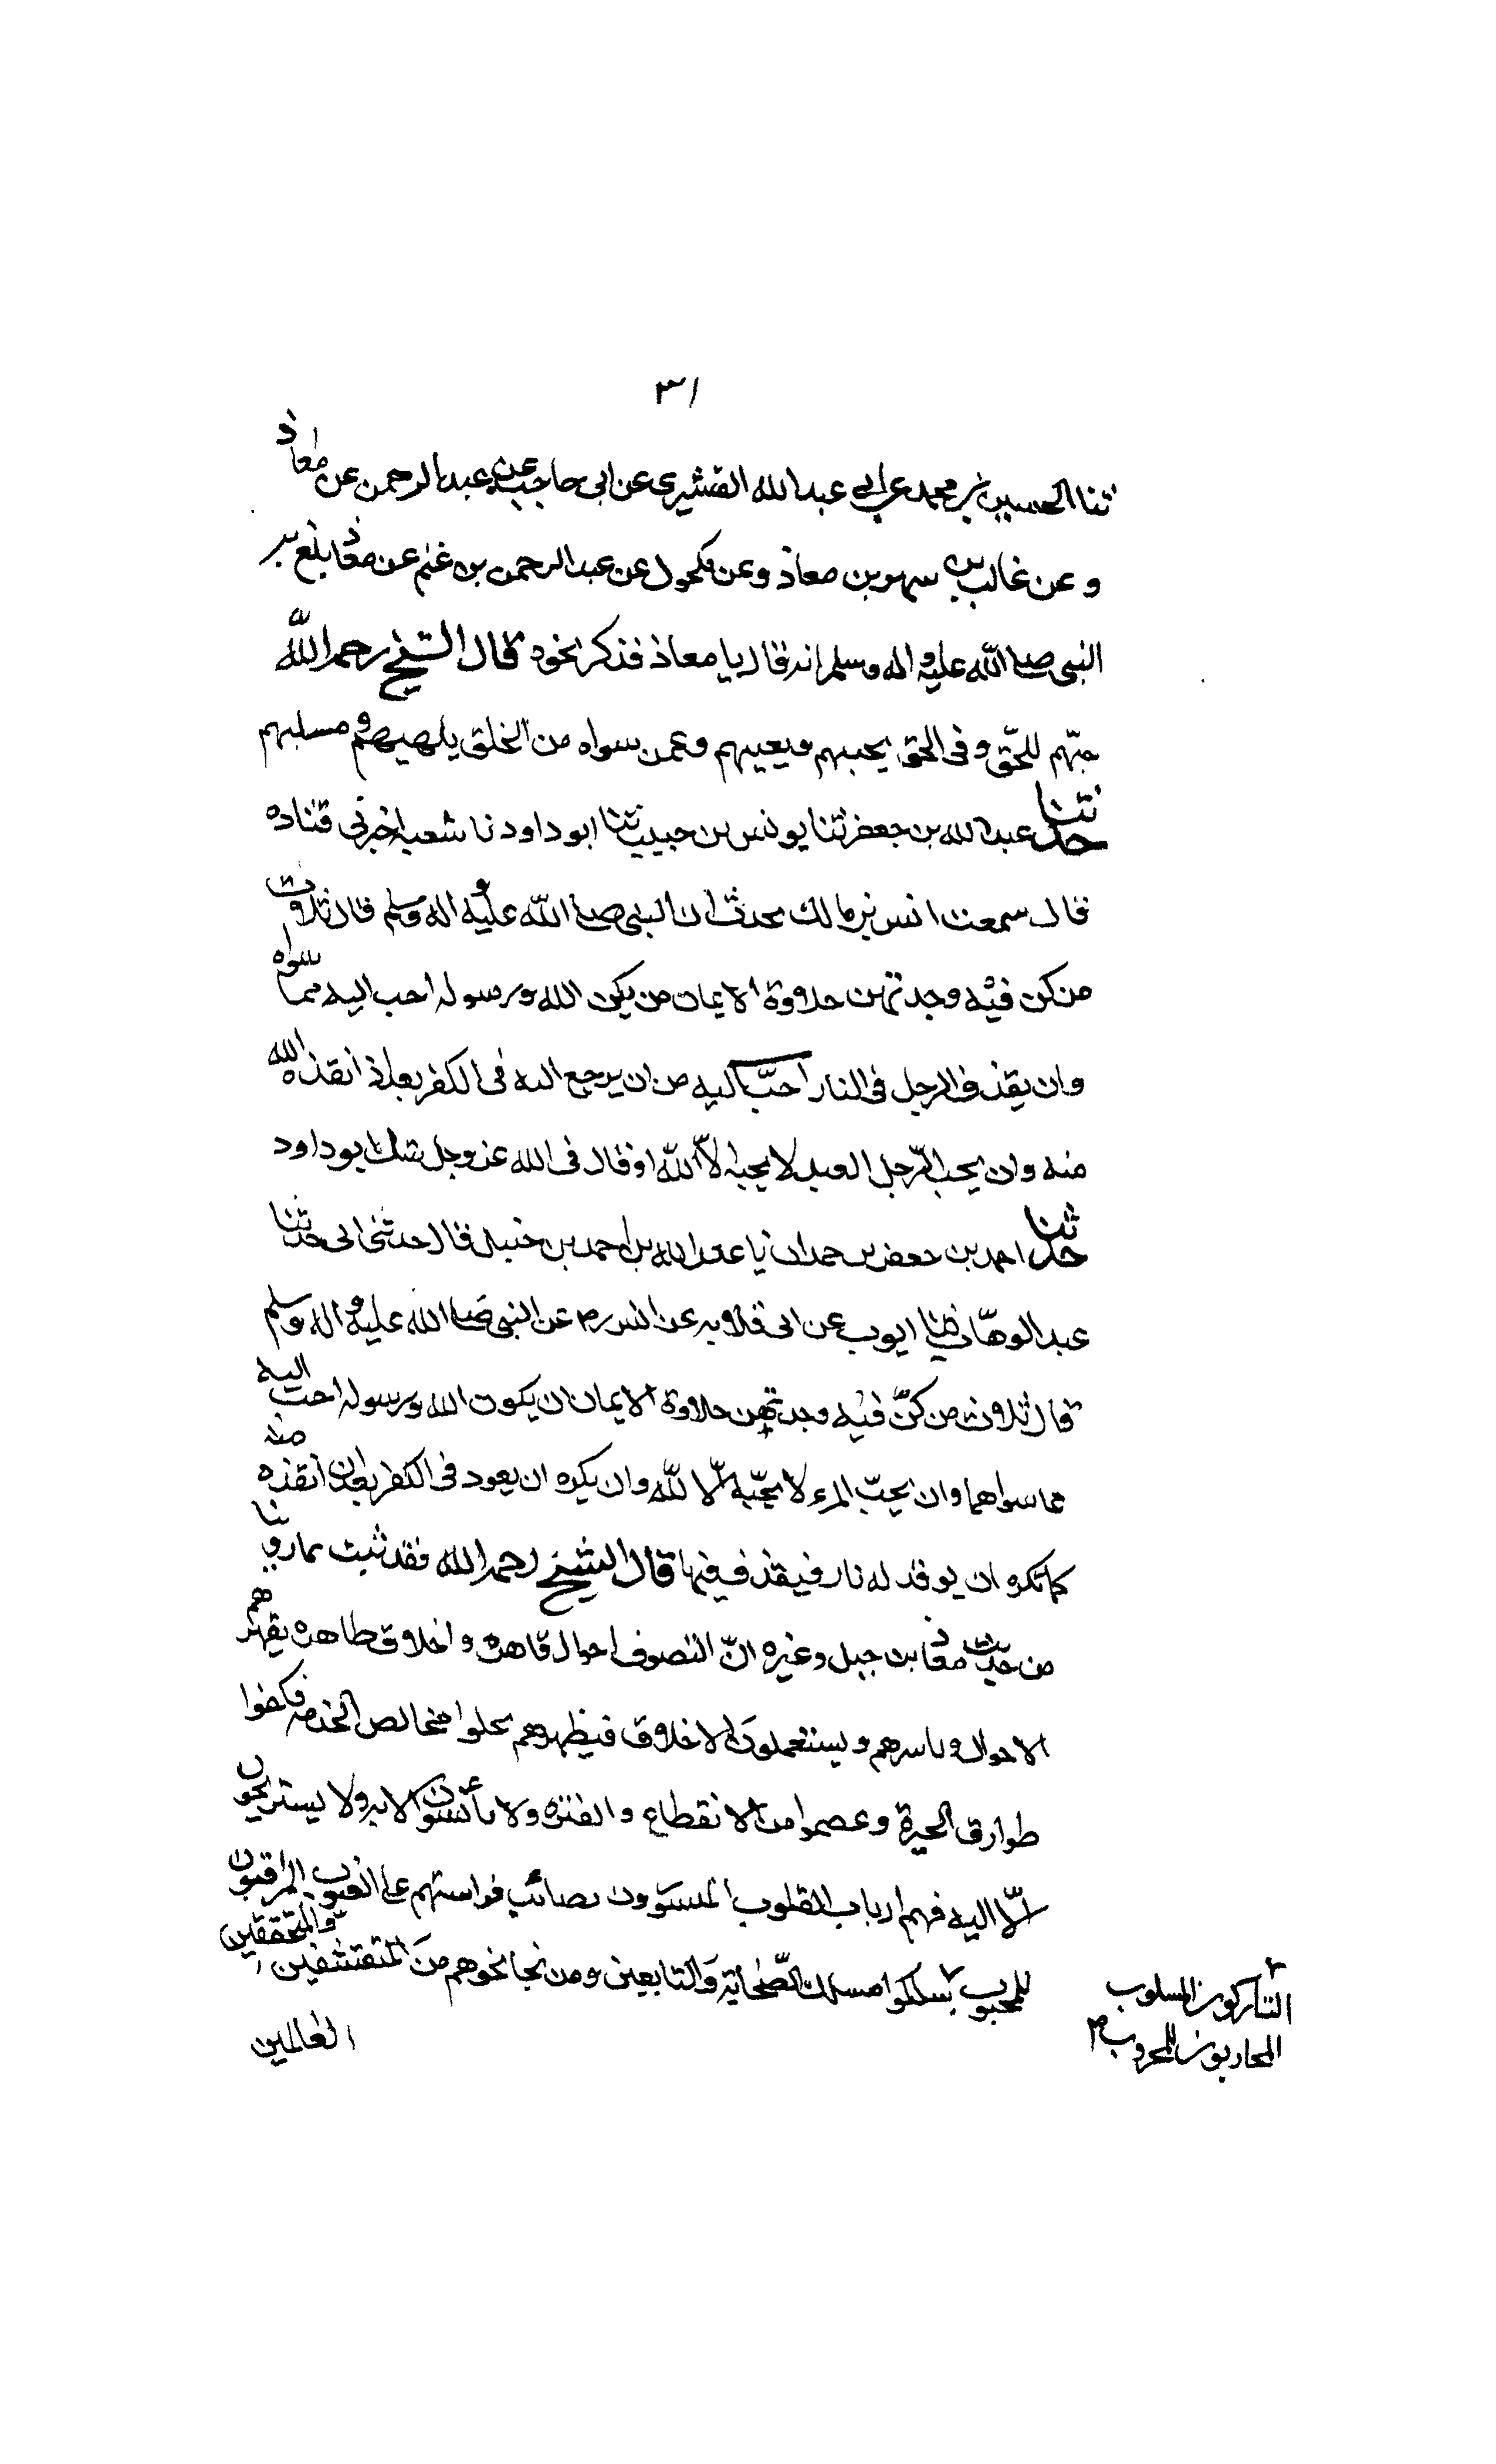 ٣١
ثنا الحسين بن محمد عن ابي عبدالله القشيري عن ابي حاجب عن عبدالرحمن عن معاذ
و عن غالب بن سهر بن معاذ وعن مكحول عن عبدالرحمن بن غنم عن معاذ يبلغ به
النبي صلى الله عليه و اله وسلم انه قال يا معاذ فذكر نحوه قال الشيخ رحمه الله
حبّهم للحّق وفي الحق يحببهم ويعيبهم وعمن سواه من الخلق يلهيهم و مسلبهم
حدثنا عبدالله بن جعفر ثنا يونس بن حبيب ثنا ابو داود نا شعبه اخبرني قتاده
قال سمعت انس بن مالك يحدث ان النبي صلى الله عليه و اله وسلم قال ثلاث
من كن فيه وجد بهن حلاوة الايمان من يكن الله ورسوله احب اليه مما سواه
وان يقذف الرجل في النار احبّ اليه من ان يرجع اليه في الكفر بعد اذ انقذه الله
منه وان يحب الرّجل العبد لا يحبه الّا لله او قال في الله عز وجل شك ابو داود
حدثنا احمد بن جعفر بن حمدان نا عبدالله بن احمد بن حنبل قال حدثني ابي حدثنا
عبدالوهّاب ثنا ايوب عن ابي قلابه عن انس رض عن النبي صلى الله عليه و اله وسلم
قال ثلاث من كنّ فيه وجد بهن حلاوة الايمان ان يكون الله ورسوله احب اليه
مما سواهما وان يحبّ المرء لا يحبّه الّا لله وان يكره ان يعود في الكفر بعد ان انقذه منه
كما تكره ان يوقد له نار فيقذف فيها قال الشيخ رحمه الله فقد ثبت بما روينا
من حديث معاذ بن جبل وغيره انّ التصوف احوال قاهره و اخلاق طاهره يقهرهم
الاحوال و ياسرهم ويستعملون الاخلاق فيظهرهم تحلوا بخالص الخدمه فكفوا
طوارق الحيرة وعصموا من الانقطاع والفتره ولا يأنسون الا به ولا يستريحون
الّا اليه فهم ارباب القلوب المسوّرون بصائب فراستهم على الغيوب المراقبون
للمحبوب سلكوا مسلك الصّحابة والتابعين ومن نحا نحوهم من المتقشفين والمتحققين
العالمين
التاركون للمسلوب
المحاربون للمحروب